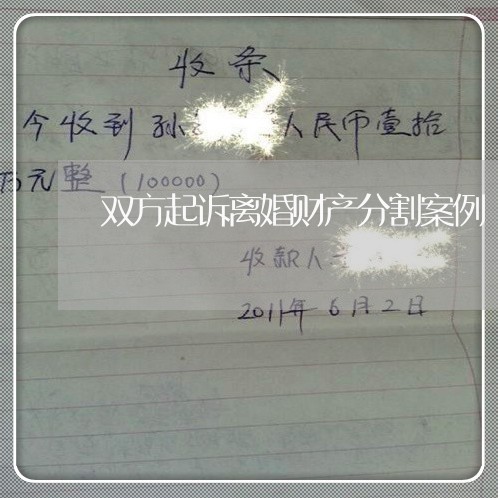 收条
今收到孙 人民币壹拾
万元整(100000)
双方起诉离婚财产分割案例
收款人
2011年6月2日